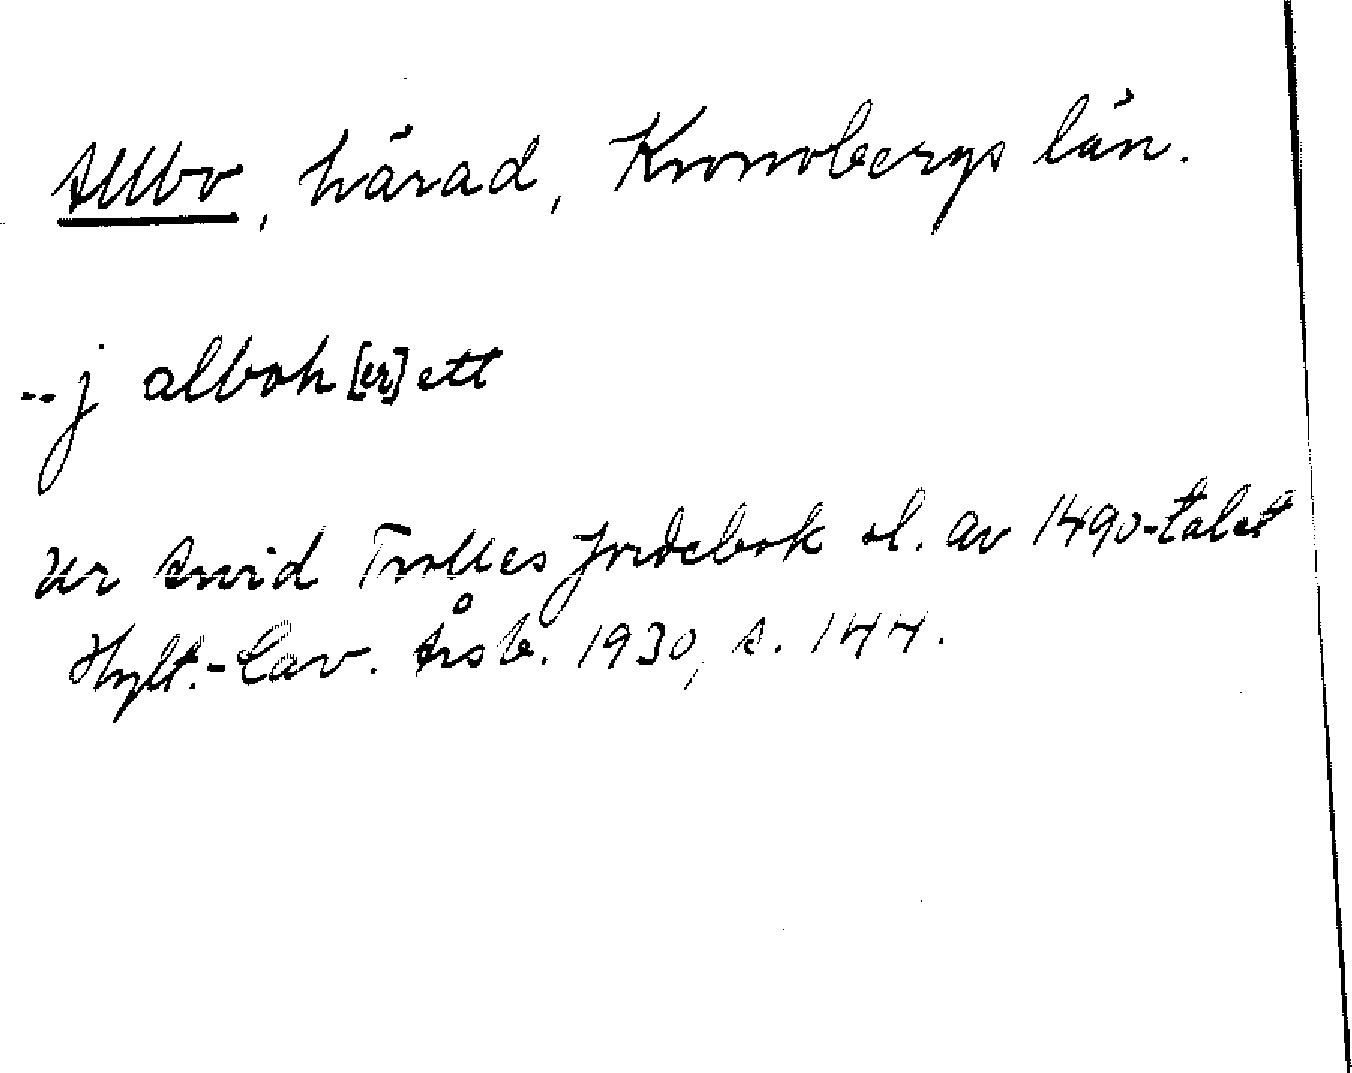 Allbo, härad, Kronobergs län.
..j alboh[er]ett
Ur Arvid Trolles jordebok sl. av 1490-talet
Hylt.-Cav. Årsb. 1930, s. 144.